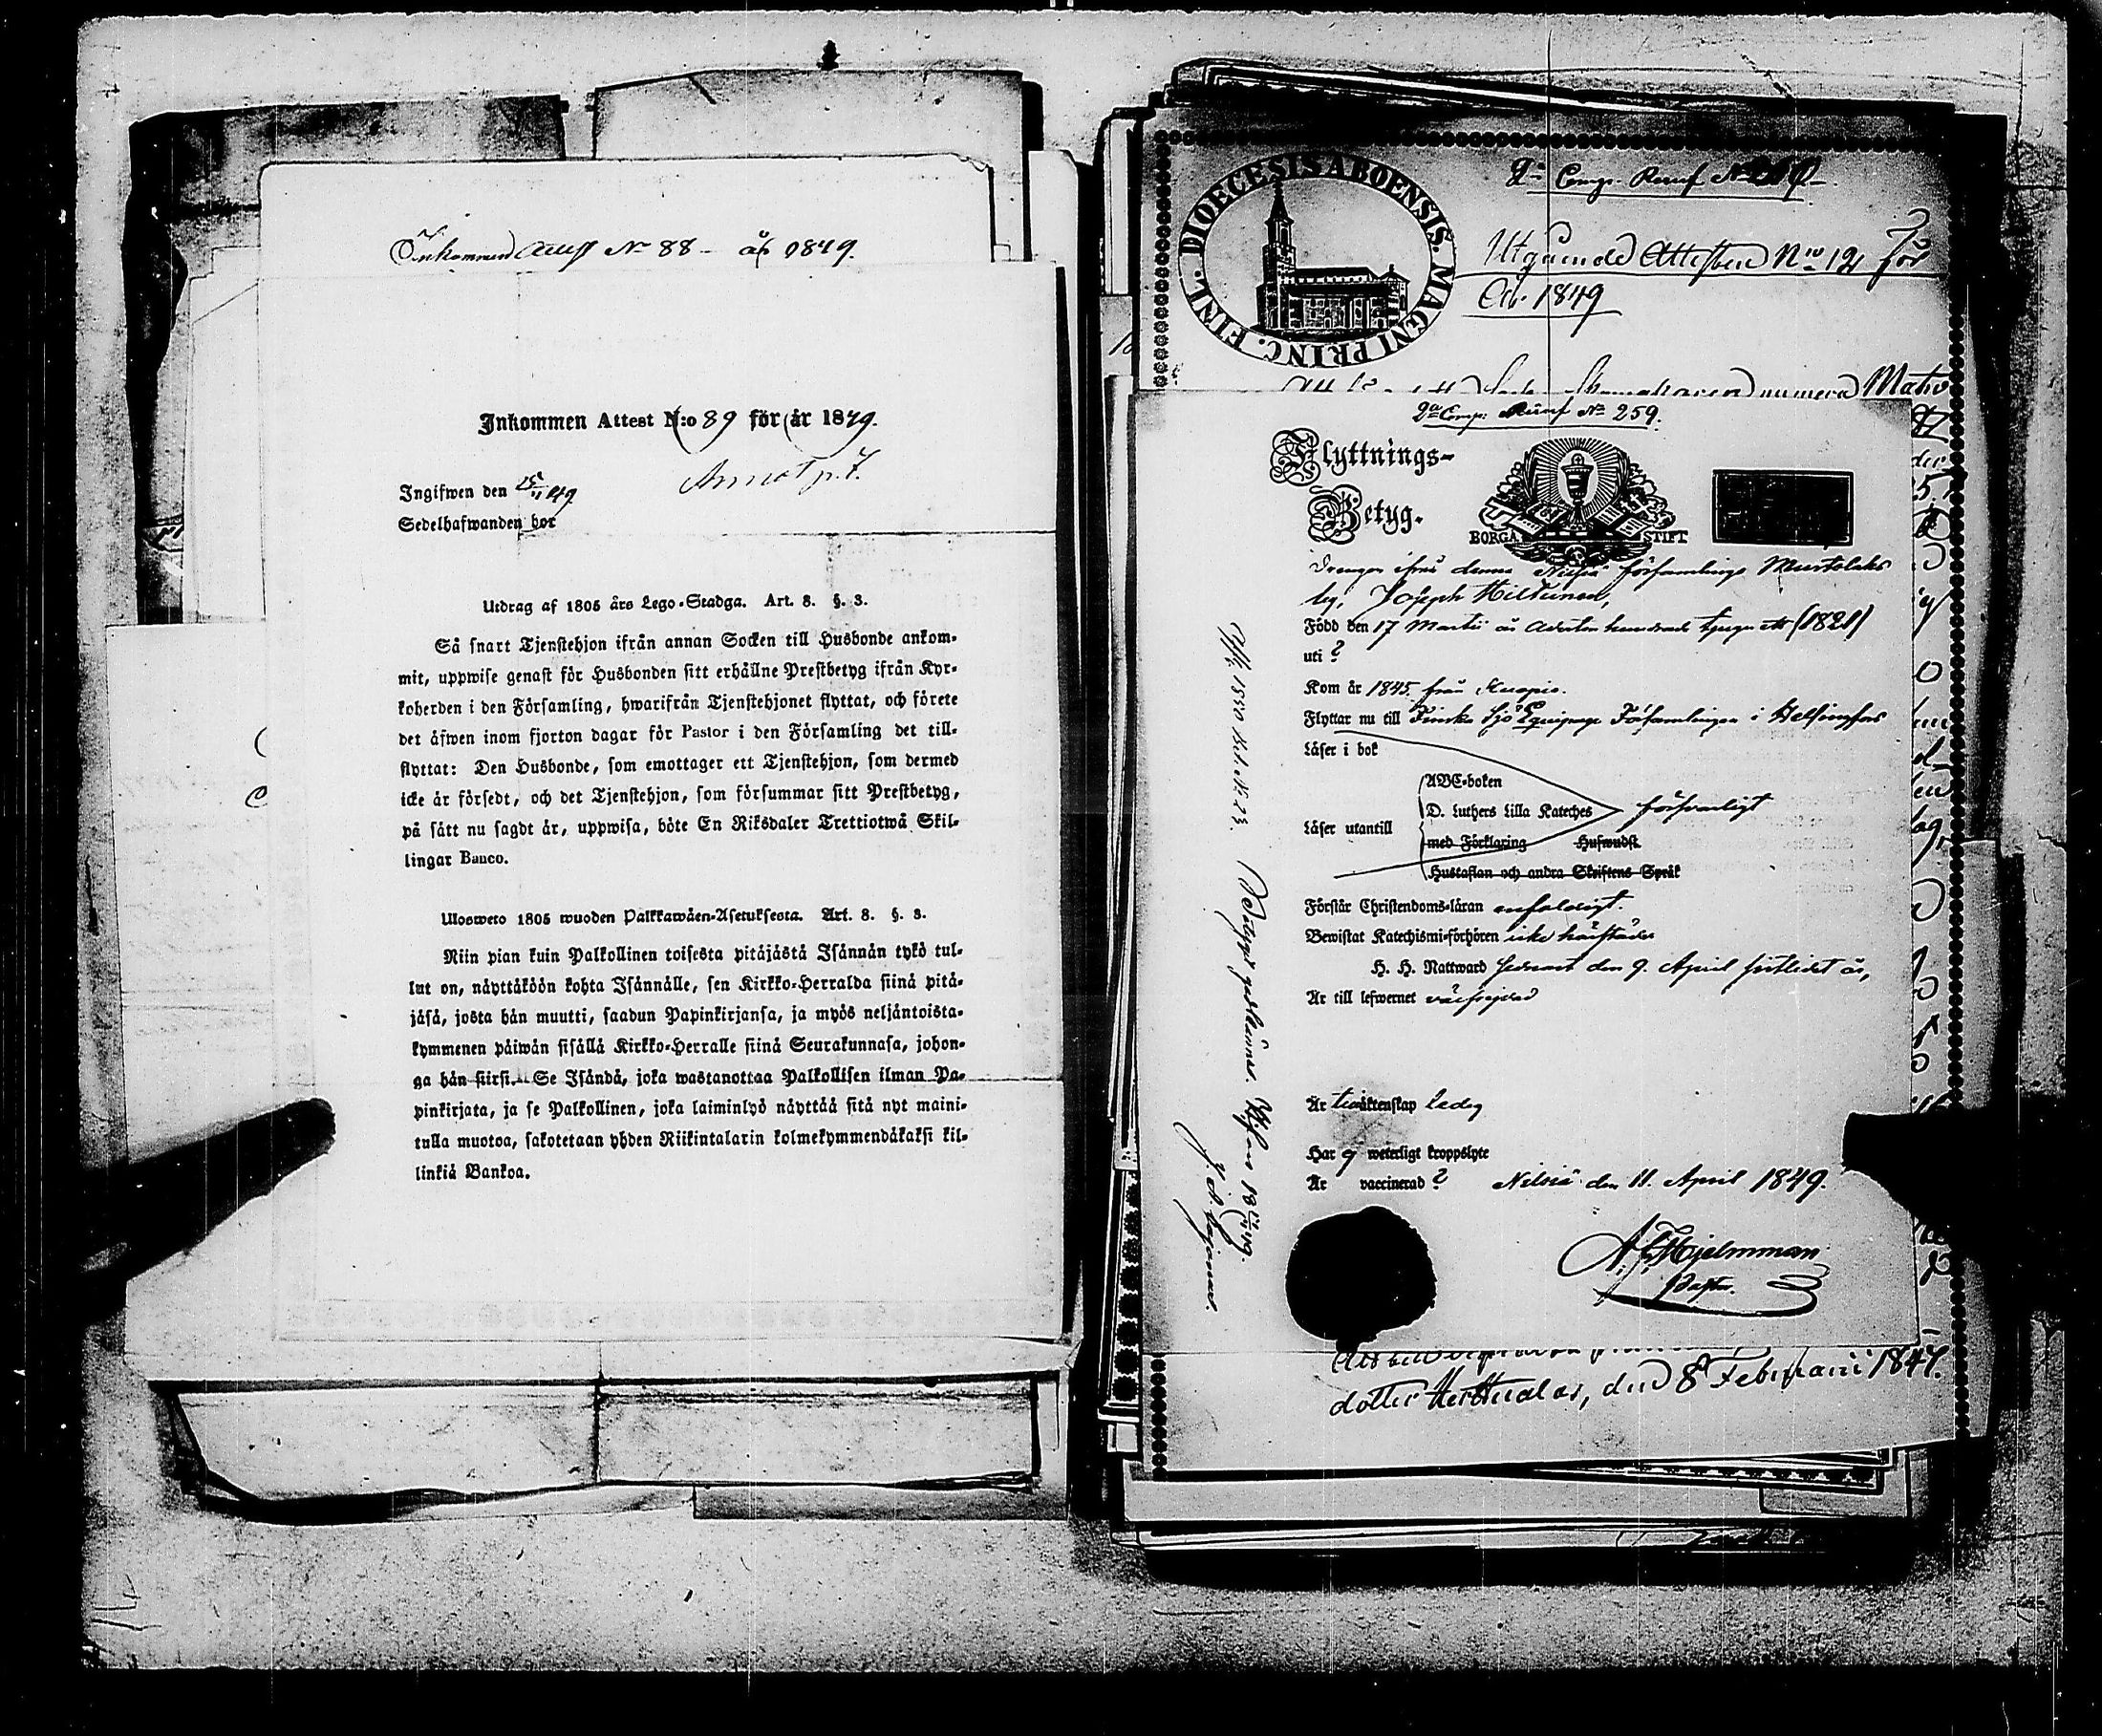 Inkommen Attest No 88 - år 1849.
Inkommen Attest N:o 89 för år 1849.
Ingifwen den 25/11 49
Sedelhafwanden bor
Utdrag af 1805 års Lego-Stadga. Art. 8. §. 3.
Så snart Tjenstehjon ifrån annan Socken till Husbonde ankom-
mit, uppwise genast för Husbonden sitt erhållne Prestbetyg ifrån Kyr-
koherden i den Församling, hwarifrån Tjenstehjonet flyttat, och förete
det äfwen inom fjorton dagar för Pastor i den Församling det till-
flyttat: Den Husbonde, som emottager ett Tjenstehjon, som dermed
icke är försedt, och det Tjenstehjon, som försummar sitt Prestbetyg,
på sätt nu sagdt är, uppwisa, böte En Riksdaler Trettiotwå Skil-
lingar Banco.
Ulosweto 1805 wuoden Palkkawäen-Asetuksesta. Art. 8. §. 3.
Niin pian kuin Palkollinen toisesta pitäjästä Isännän tykö tul-
lut on, näyttäköön kohta Isännälle, sen Kirkko-Herralda siinä pitä-
jäsä, josta hän muutti, saadun Papinkirjansa, ja myös neljäntoista-
kymmenen päiwän sisällä Kirkko-Herralle siinä Seurakunnasa, johon-
ga hän siirsi. Se Isändä, joka wastanottaa Palkollisen ilman Pa-
pinkirjata, ja se Palkollinen, joka laiminlyö näyttää sitä nyt maini-
tulla muotoa, sakotetaan yhden Riikintalarin kolmekymmendäkaksi kil-
linkiä Bankoa.
DIOECESIS ABOENSIS. MAGNI PRINC. FINL.
Utgående Attesten No 12 för
År 1849
2a Comp: Rünf No 259.
Flyttnings-
Betyg.
BORGÅ STIFT
Drengen ifrån denna Nilsiä församlings Murtolaks
by, Joseph Hiltunen,
Född den 17 Martii år Aderton hundrade tjugu ett (1821)
uti ?
Kom år 1845 från Kuopio.
Flyttar nu till Finska Sjö Equipage Församlingen i Helsingfors
Läser i bok
Läser utantill
ABC-boken
D. Luthers Lilla Kateches
med Förklaring Huswudst.
Hustaflan och andra Skriftens Språk
försvarligt
Förstår Christendoms-läran enfaldigt.
Bewistat Katechismi-förhören icke härstädes
H. H. Nattward sednast den 9. April sistlidet år,
Är till lefwernet
Är till äktenskap ledig
Har weterligt kroppslyte
Är vaccinerad ? Nilsiä den 11. April 1849.
A. G. Hjelmman
Pastor.
dotter Herttualas, den 8 Februarii 1847.